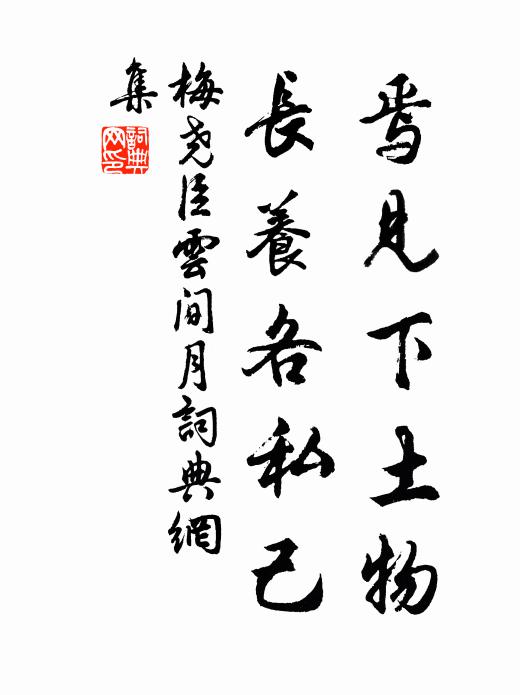 焉見下土物
長養各私己
梅堯臣雲間月詞典網
集
詞典網印